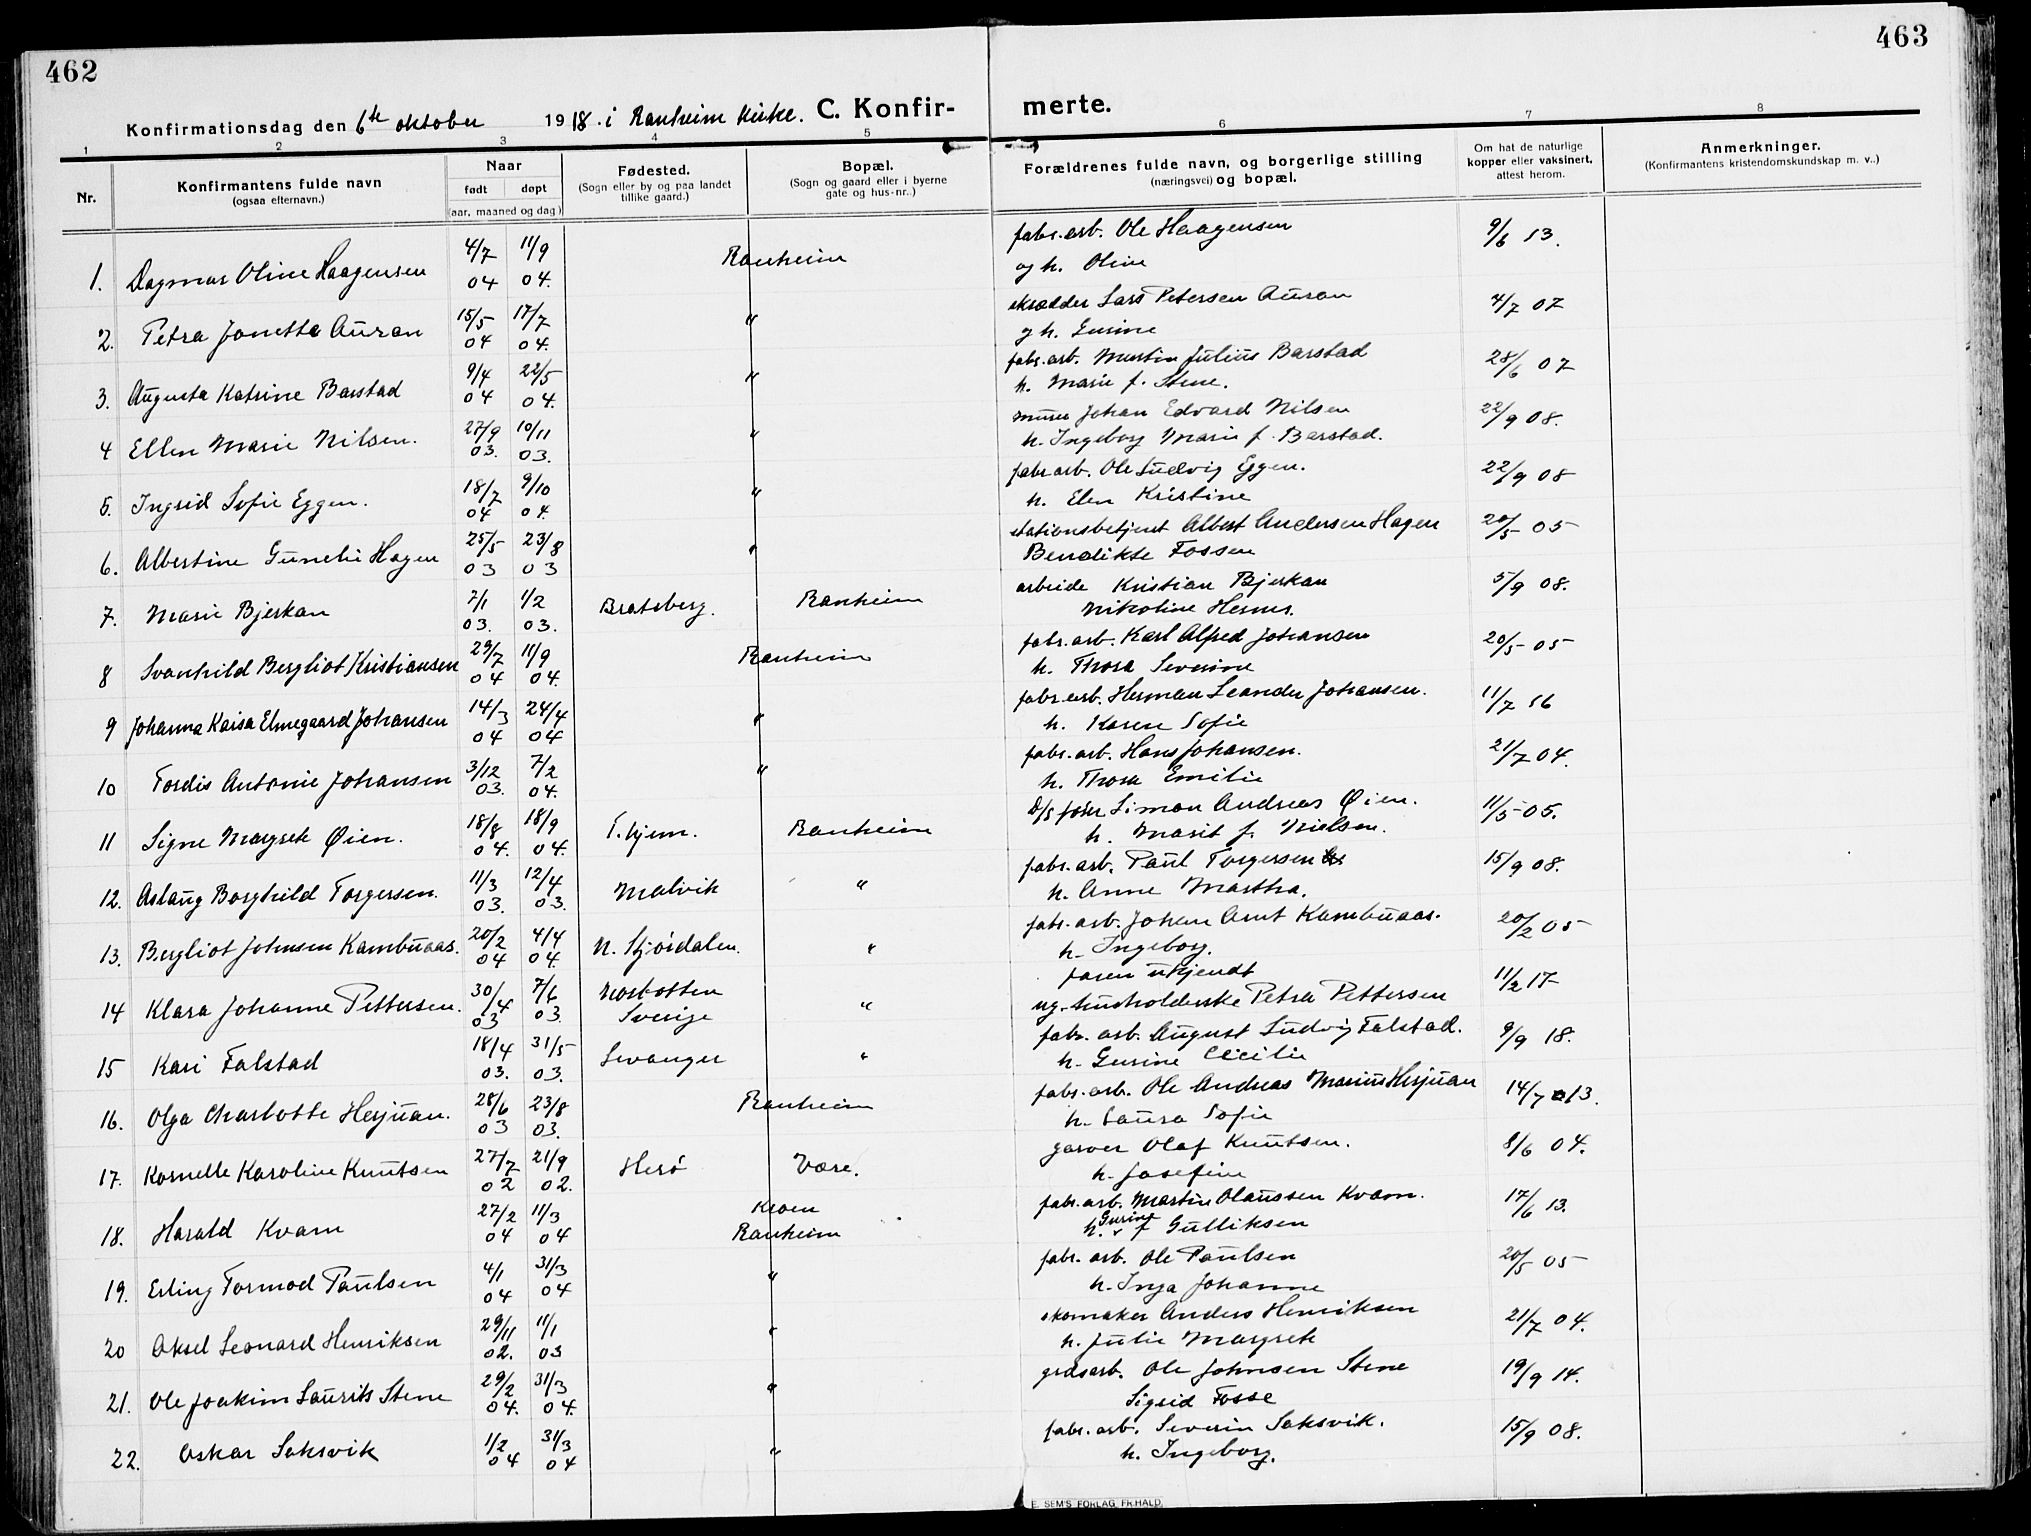 462
463
Konfirmationsdag den 6te oktober 1918. i Ranheim kirke. C. Konfir-merte.
1 2 3 4 5 6 7 8
Nr.
Konfirmantens fulde navn
(ogsaa efternavn.)
Naar
født døpt
(aar, maaned og dag)
Fødested.
(Sogn eller by og paa landet
tillike gaard.)
Bopæl.
(Sogn og gaard eller i byerne
gate og hus-nr.)
Forældrenes fulde navn, og borgerlige stilling
(næringsvei) og bopæl.
Om hat de naturlige
kopper eller vaksinert,
attest herom.
Anmerkninger.
(Konfirmantens kristendomskundskap m. v..)
1. Dagmar Oline Haagensen 4/7 04 11/9 04. Ranheim fabr. arb. Ole Haagensen 9/6 13.
og h. Oline
2. Petra Janetta Auran 15/5 04 17/7 04. " skrædder Lars Petersen Auran 4/7 07
og h. Gurine
3. Augusta Katrine Barstad 9/4 04 22/5 04. " fabr. arb. Martin Julius Barstad 28/6 07
h. Marie f. Stene.
4 Ellen Marie Nilsen. 27/9 03. 10/11 03. " murer Johan Edvard Nilsen 22/9 08.
h. Ingeborg Marie f. Barstad.
5. Ingrid Sofie Eggen. 18/7 04 9/10 04. " fabr. arb. Ole Ludvig Eggen. 22/9 08
h. Elen Kristine
6. Albertine Gunelie Hagen 25/5 03 23/8 03 " stationsbetjent Albert Andersen Hagen 20/5 05
Bendikte Fossen
7. Marie Bjerkan 7/1 03. 1/2 03. Bratsberg. Ranheim arbeide Kristian Bjerkan 5/9 08.
Nikoline
8 Svanhild Bergliot Kristiansen 29/7 04 11/9 04. Ranheim fabr. arb. Karl Alfred Johansen 20/5 05
h. Thora Severine
9 Johanna Kaisa Elmegaard Johansen 14/3 04 24/4 04 " fabr. arb. Herman Leander Johansen. 11/7 16
h. Karen Sofie
10 Tordis Antonie Johansen 3/12 03. 7/2 04. " fabr. arb. Hans Johansen. 21/7 04.
h. Thora Emilie
11 Signe Margrete Øien. 18/8 04. 18/9 04. T.hjem. Ranheim Simon Andreas Øien. 11/5 05.
h. Marit f. Nielsen.
12. Aslaug Borghild Torgersen. 11/3 03. 12/4 03. Malvik " fabr. arb. Paul Torgersen 15/9 08.
h. Anne Martha.
13. Bergliot Johnsen Kambuaas. 20/2 04 4/4 04. N. Stjørdalen. " fabr. arb. Johan Arnt Kambuaas. 20/2 05
h. Ingeborg.
14 Klara Johanne Pettersen. 30/4 03 7/6 03. Norbotten Sverige " faren ukjendt 11/2 17
ug. husholderske Petra Pettersen
15 Kari Falstad 18/4 03. 31/5 03. Levanger " fabr. arb. August Ludvig Falstad. 9/9 18.
h. Gurine Cecilie
16. Olga Charlotte Hesjuan. 28/6 03 23/8 03. Ranheim fabr. arb. Ole Andreas Marius Hesjuan 14/7 13.
h. Laura Sofie
17. Kornelle Karoline Knutsen 27/7 02 21/9 02. Herø Være. garver Olaf Knutsen. 8/6 04.
h. Josefine
18. Harald Kvam 27/2 04 11/3 04 Kroen Ranheim fabr. arb. Martin Olaussen Kvam. 17/6 13.
h. Gurine f Gulliksen
19. Erling Tormod Paulsen 4/1 04 31/3 04 " fabr. arb. Ole Paulsen 20/5 05
h. Inga Johanne
20 Aksel Leonard Henriksen 29/11 02. 11/1 03 " skomaker Anders Henriksen 21/7 04.
h. Julie Margrete
21. Ole Joakim Laurits Stene 29/2 04. 31/3 04. " grdsarb. Ole Johnsen Stene 19/9 14.
Sigrid Fosse
22. Oskar Saksvik 1/2 04 31/3 04 " fabr. arb. Severin Saksvik. 15/9 08.
h. Ingeborg.
E. SEM'S FORLAG FR.HALD.